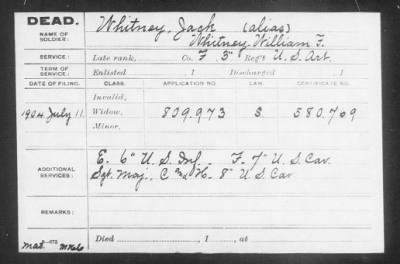 DEAD.
NAME OF SOLDIER:
Whitney, Jack (alias)
Whitney, William F.
SERVICE:
Late rank, Co. F 3" Reg't U.S. Art.
TERM OF SERVICE:
Enlisted , 1 Discharged , 1
DATE OF FILING. CLASS. APPLICATION NO. LAW. CERTIFICATE NO.
Invalid,
1904 July 11. Widow, 809.973 S. 580.769
Minor,
ADDITIONAL SERVICES:
E. 6" U.S. Inf. F. 7" U.S. Cav.
Sgt. Maj., C and H. 8" U.S. Cav.
REMARKS:
Died , 1 , at